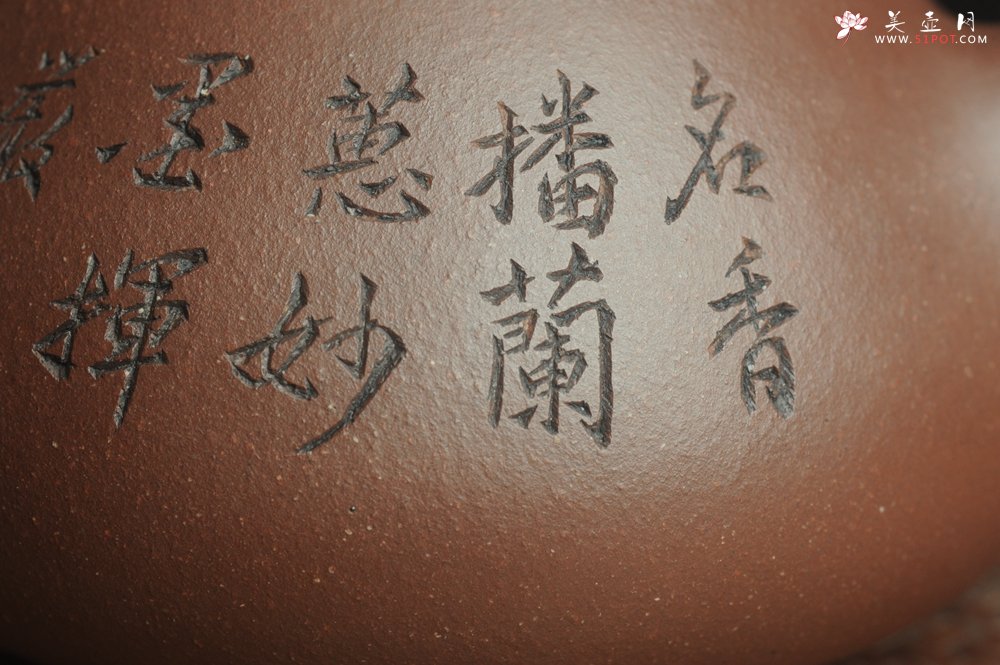 名香
播蘭
蕙妙
墨揮
美壶网
WWW.51POT.COM